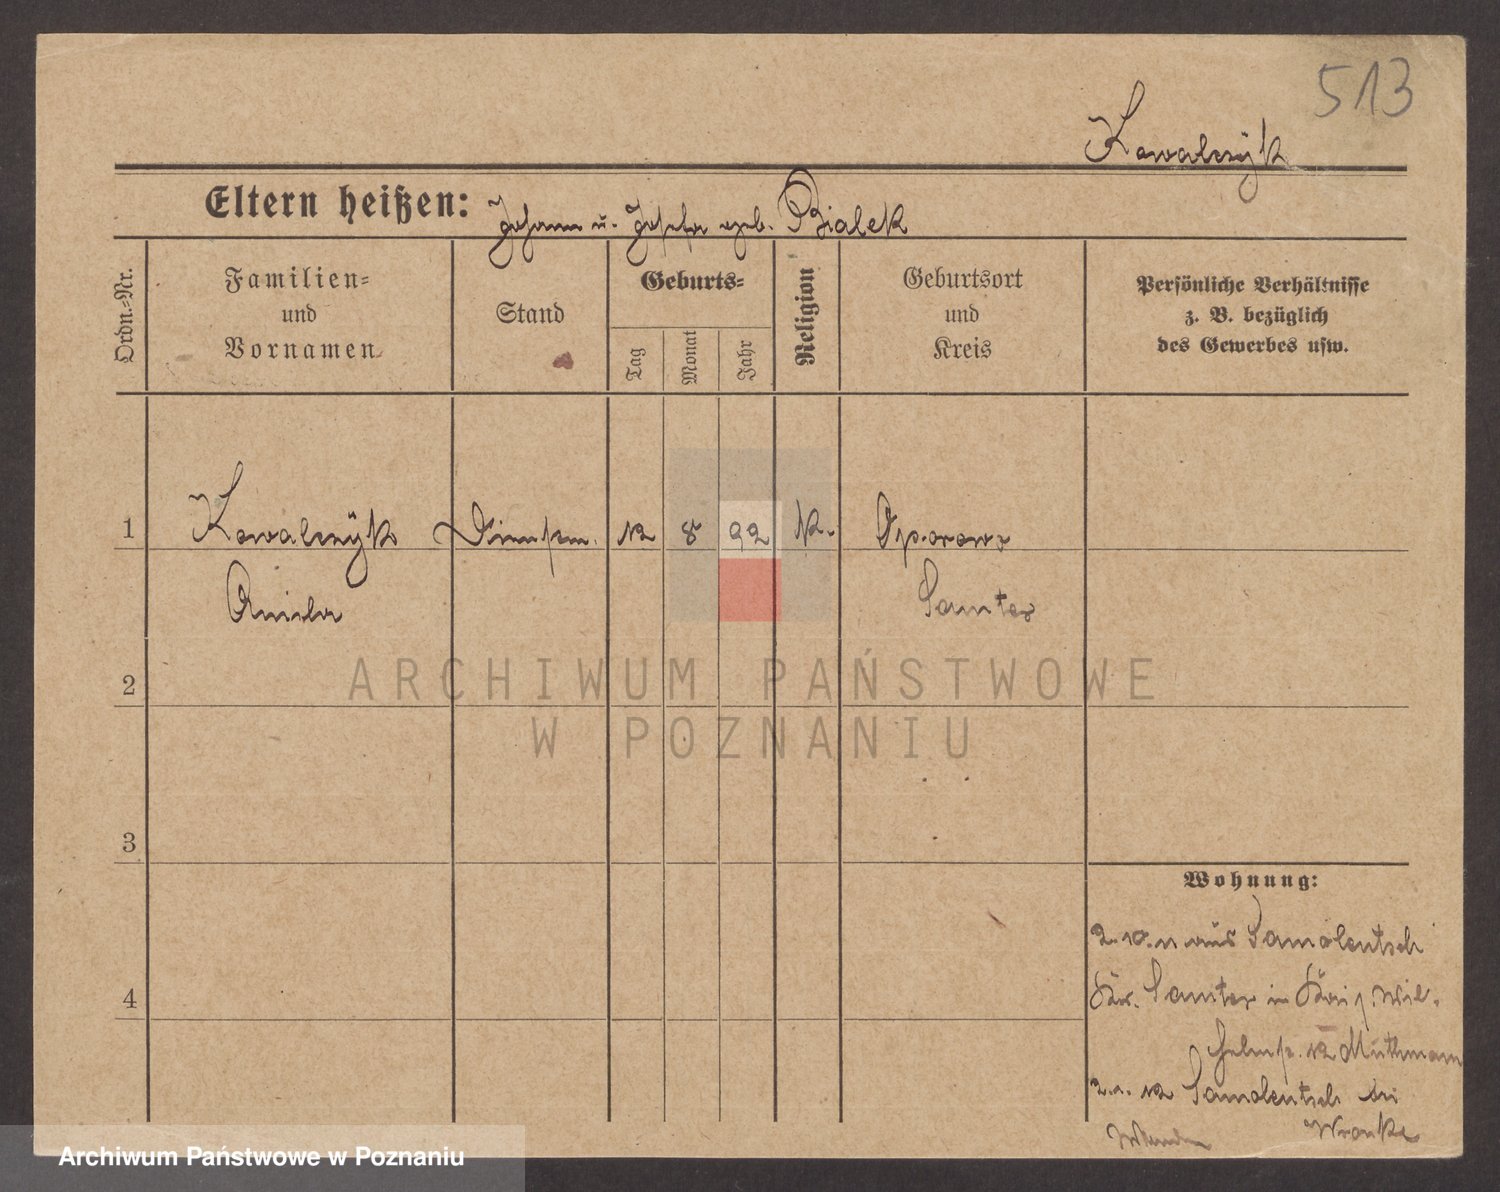 513
Kowalczÿk
Eltern heißen: Johann u. Josefa geb. Bialek
Ordn.-Nr.
Familien-
und
Vornamen
Stand
Geburts-
Tag
Monat
Jahr
Religion
Geburtsort
und
Kreis
Persönliche Verhältnisse
z. B. bezüglich
des Gewerbes usw.
1 Kowalczÿk 12 8 92 K.
Samter
2
ARCHIWUM PAŃSTWOWE
W POZNANIU
3
4
Wohnung:
2.10.11 aus Samolentsch
Kr. Samter in
12 Muthmann
2.1.12 Samolentsch bei
Wronke
Archiwum Państwowe w Poznaniu